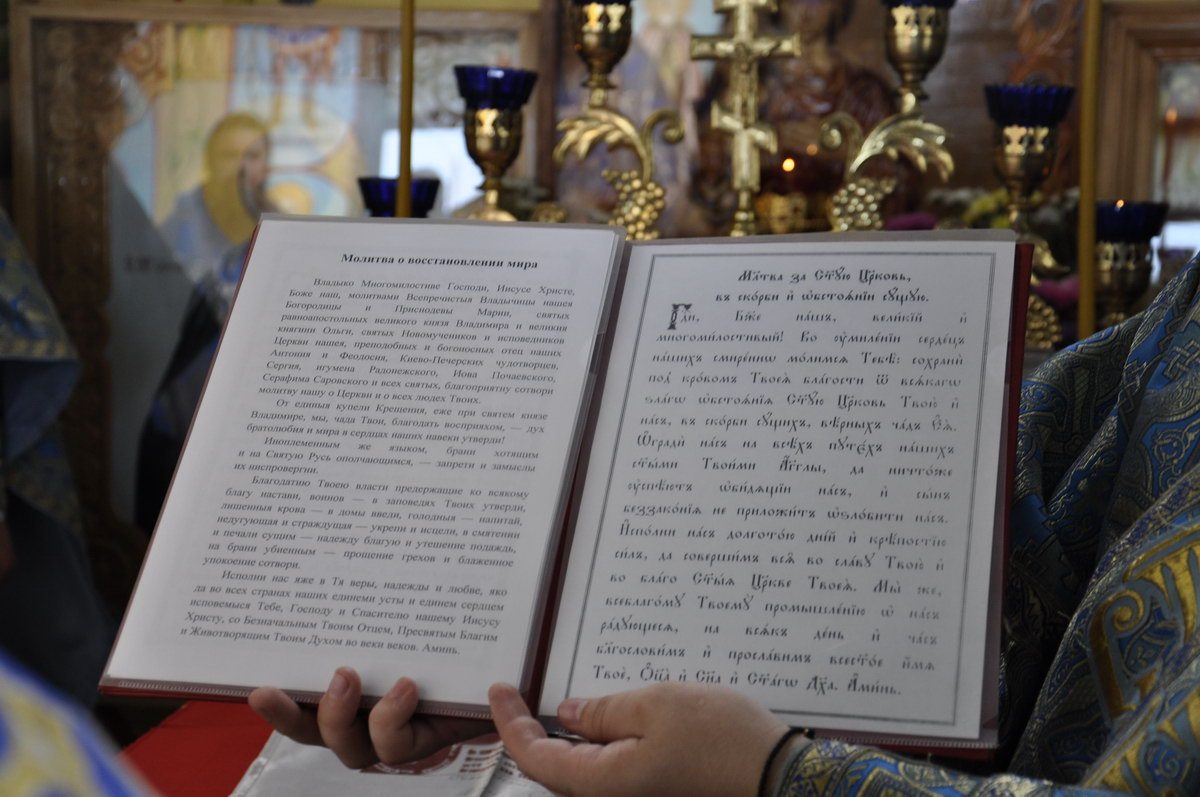 Молитва о восстановлении мира
Владыко Многомилостиве Господи, Иисусе Христе,
Боже наш, молитвами Всепречистыя Владычицы нашея
Богородицы и Приснодевы Марии, святых
равноапостольных великого князя Владимира и великия
княгини Ольги, святых Новомучеников и исповедников
Церкви нашея, преподобных и богоносных отец наших
Антония и Феодосия, Киево-Печерских чудотворцев,
Сергия, игумена Радонежского, Иова Почаевского,
Серафима Саровского и всех святых, благоприятну сотвори
молитву нашу о Церкви и о всех людех Твоих.
От единыя купели Крещения, еже при святем князе
Владимире, мы, чада Твои, благодать восприяхом, — дух
братолюбия и мира в сердцах наших навеки утверди!
Иноплеменным же языком, брани хотящим
и на Святую Русь ополчающимся, — запрети и замыслы
их ниспровергни.
Благодатию Твоею власти предержащие ко всякому
благу настави, воинов — в заповедях Твоих утверди,
лишенныя крова — в домы введи, голодныя — напитай,
недугующая и страждущая — укрепи и исцели, в смятении
и печали сущим — надежду благую и утешение подаждь,
на брани убиенным — прощение грехов и блаженное
упокоение сотвори.
Исполни нас яже в Тя веры, надежды и любве, яко
да во всех странах наших единеми усты и единем сердцем
исповемыся Тебе, Господу и Спасителю нашему Иисусу
Христу, со Безначальным Твоим Отцем, Пресвятым Благим
и Животворящим Твоим Духом во веки веков. Аминь.
Мл҃тва за Ст҃ꙋю Цр҃ковь,
въ ско́рби и҆ ѡ҆бстоѧ́нїи сꙋ́щꙋю.
Гдⷭ҇и, Бж҃е на́шъ, вели́кїй и҆
многоми́лостивый! Во ᲂу҆миле́нїи серде́цъ
на́шихъ смире́ннѡ мо́лимсѧ Тебѣ̀: сохранѝ
под̾ кро́вомъ Твоеѧ̀ бла́гости ѿ всѧ́кагѡ
ѕла́гѡ ѡ҆бстоѧ́нїѧ Ст҃ꙋ́ю Цр҃ковь Твою̀ и҆
на́съ, въ ско́рби сꙋ́щихъ, вѣ́рныхъ ча́дъ Є҆ѧ̀.
Ѡ҆градѝ на́съ на всѣ́хъ пꙋте́хъ на́шихъ
ст҃ы́ми Твои́ми А҆́гг҃лы, да ничто́же
ᲂу҆спѣ́ютъ ѡ҆би́дѧщїи на́съ, и҆ сы́нъ
беззако́нїѧ не приложи́тъ ѡ҆ѕло́бити на́съ.
И҆спо́лни на́съ долгото́ю дні́й и҆ крѣ́постїю
си́лъ, да соверши́мъ всѧ̑ во сла́вꙋ Твою̀ и҆
во бла́го Ст҃ы́ѧ Цр҃кве Твоеѧ̀. Мы́ же,
всеблаго́мꙋ Твоемꙋ̀ промышле́нїю ѡ҆ на́съ
ра́дꙋющесѧ, на всѧ́къ де́нь и҆ ча́съ
бл҃гослови́мъ и҆ просла́вимъ всест҃о́е и҆́мѧ
Твоѐ, Ѻ҆ц҃а̀ и҆ Сн҃а и҆ Ст҃а́гѡ Дх҃а. А҆ми́нь.